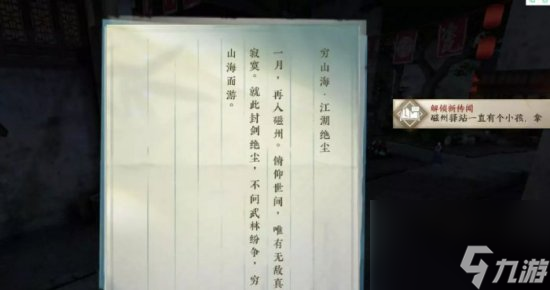 穷山海·江湖绝尘
一月，再入磁州。俯仰世间，唯有无敌真
寂寞。就此封剑绝尘，不问武林纷争，穷
山海而游。
解锁新传闻
磁州驿站一直有个小孩，拿
九游